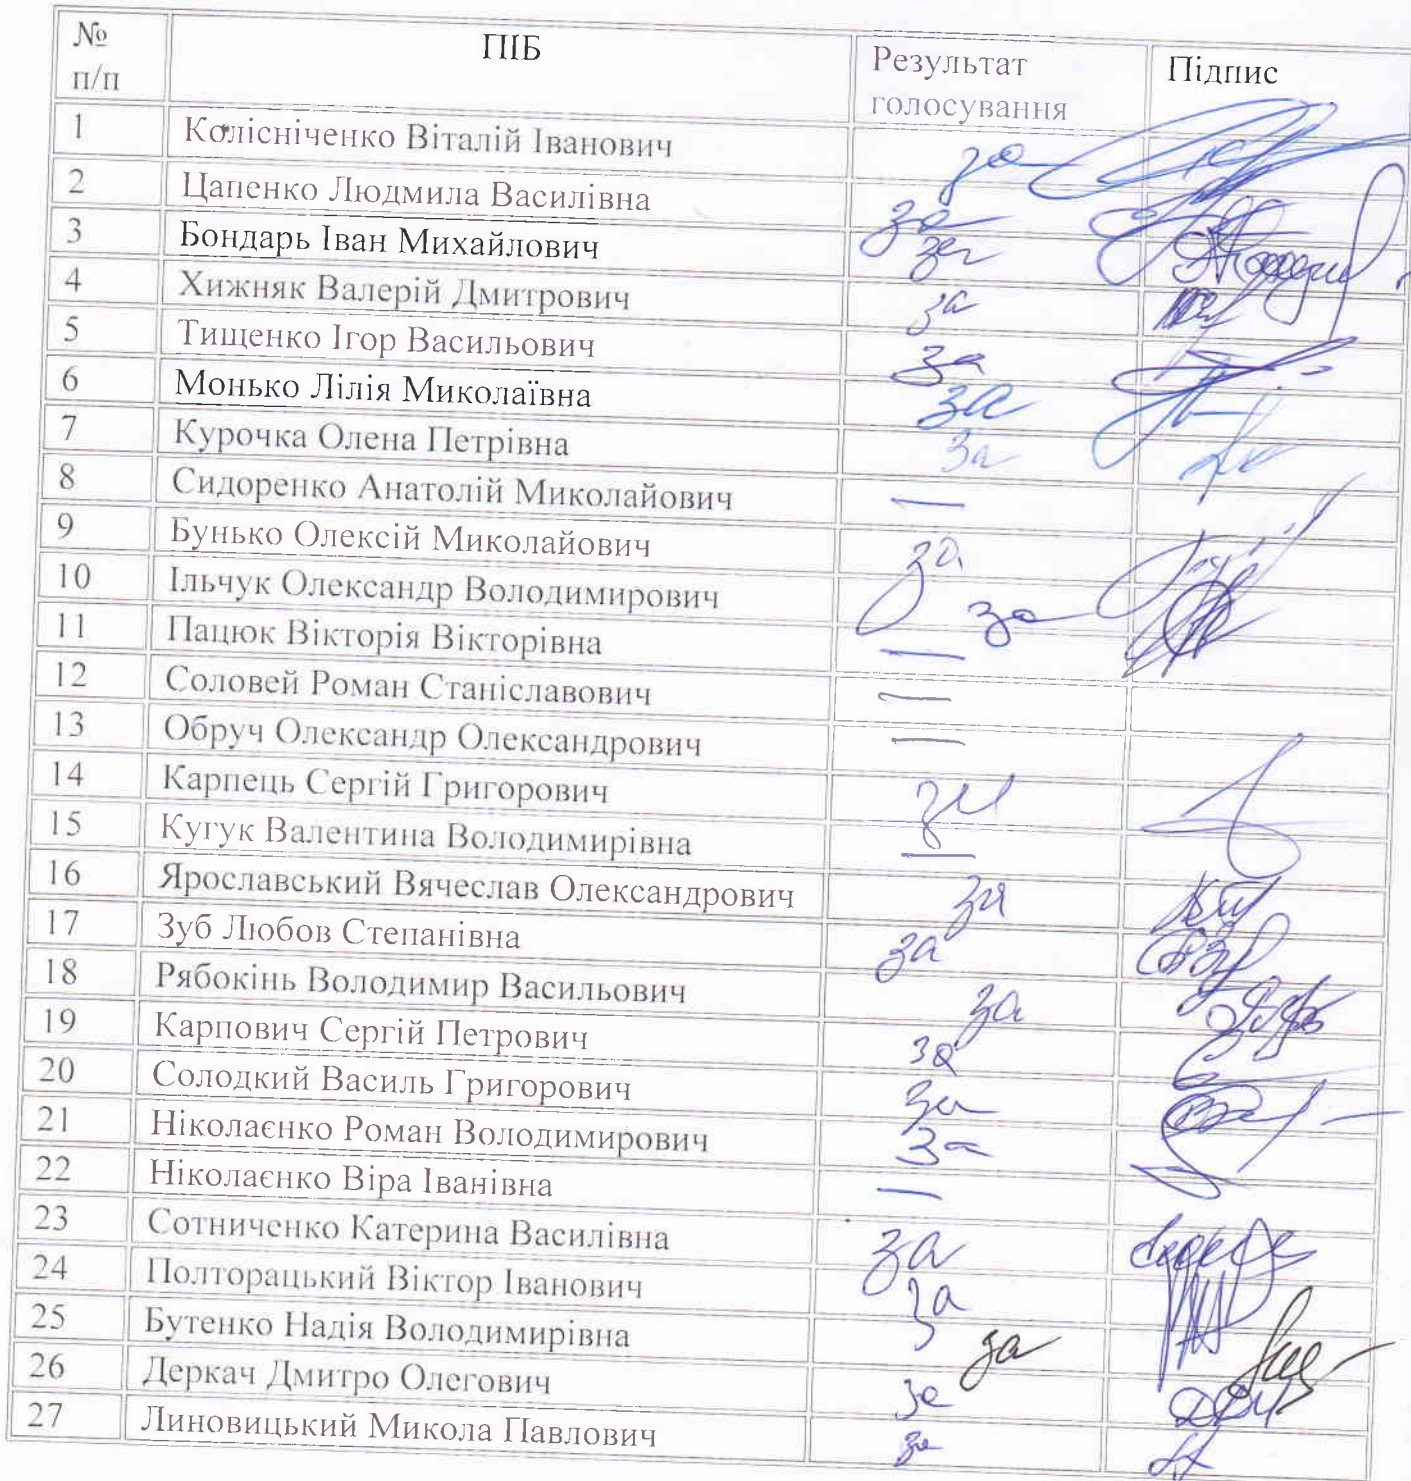 № п/п ПІБ Результат голосування Підпис
1 Колісніченко Віталій Іванович за
2 Цапенко Людмила Василівна за
3 Бондарь Іван Михайлович за
4 Хижняк Валерій Дмитрович за
5 Тищенко Ігор Васильович за
6 Монько Лілія Миколаївна за
7 Курочка Олена Петрівна за
8 Сидоренко Анатолій Миколайович —
9 Бунько Олексій Миколайович за
10 Ільчук Олександр Володимирович за
11 Пацюк Вікторія Вікторівна —
12 Соловей Роман Станіславович —
13 Обруч Олександр Олександрович —
14 Карпець Сергій Григорович за
15 Кугук Валентина Володимирівна —
16 Ярославський Вячеслав Олександрович за
17 Зуб Любов Степанівна за
18 Рябокінь Володимир Васильович за
19 Карпович Сергій Петрович за
20 Солодкий Василь Григорович за
21 Ніколаєнко Роман Володимирович за
22 Ніколаєнко Віра Іванівна —
23 Сотниченко Катерина Василівна за
24 Полторацький Віктор Іванович за
25 Бутенко Надія Володимирівна за
26 Деркач Дмитро Олегович за
27 Линовицький Микола Павлович за